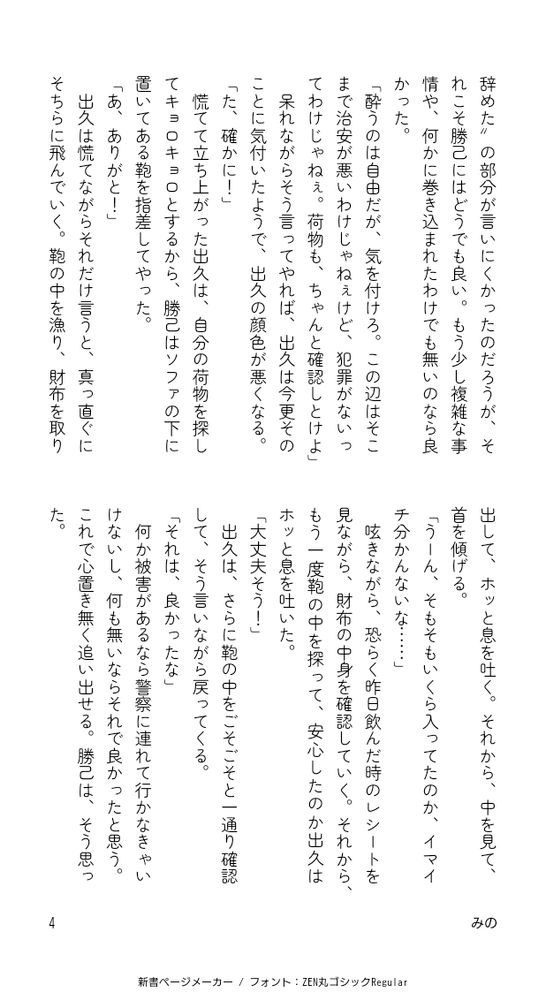 辞めた〟の部分が言いにくかったのだろうが、そ
れこそ勝己にはどうでも良い。もう少し複雑な事
情や、何かに巻き込まれたわけでも無いのなら良
かった。
「酔うのは自由だが、気を付けろ。この辺はそこ
まで治安が悪いわけじゃねぇけど、犯罪がないっ
てわけじゃねぇ。荷物も、ちゃんと確認しとけよ」
呆れながらそう言ってやれば、出久は今更その
ことに気付いたようで、出久の顔色が悪くなる。
「た、確かに！」
慌てて立ち上がった出久は、自分の荷物を探し
てキョロキョロとするから、勝己はソファの下に
置いてある鞄を指差してやった。
「あ、ありがと！」
出久は慌てながらそれだけ言うと、真っ直ぐに
そちらに飛んでいく。鞄の中を漁り、財布を取り
出して、ホッと息を吐く。それから、中を見て、
首を傾げる。
「うーん、そもそもいくら入ってたのか、イマイ
チ分かんないな……」
呟きながら、恐らく昨日飲んだ時のレシートを
見ながら、財布の中身を確認していく。それから、
もう一度鞄の中を探って、安心したのか出久は
ホッと息を吐いた。
「大丈夫そう！」
出久は、さらに鞄の中をごそごそと一通り確認
して、そう言いながら戻ってくる。
「それは、良かったな」
何か被害があるなら警察に連れて行かなきゃい
けないし、何も無いならそれで良かったと思う。
これで心置き無く追い出せる。勝己は、そう思っ
た。
4
みの
新書ページメーカー / フォント：ZEN丸ゴシックRegular